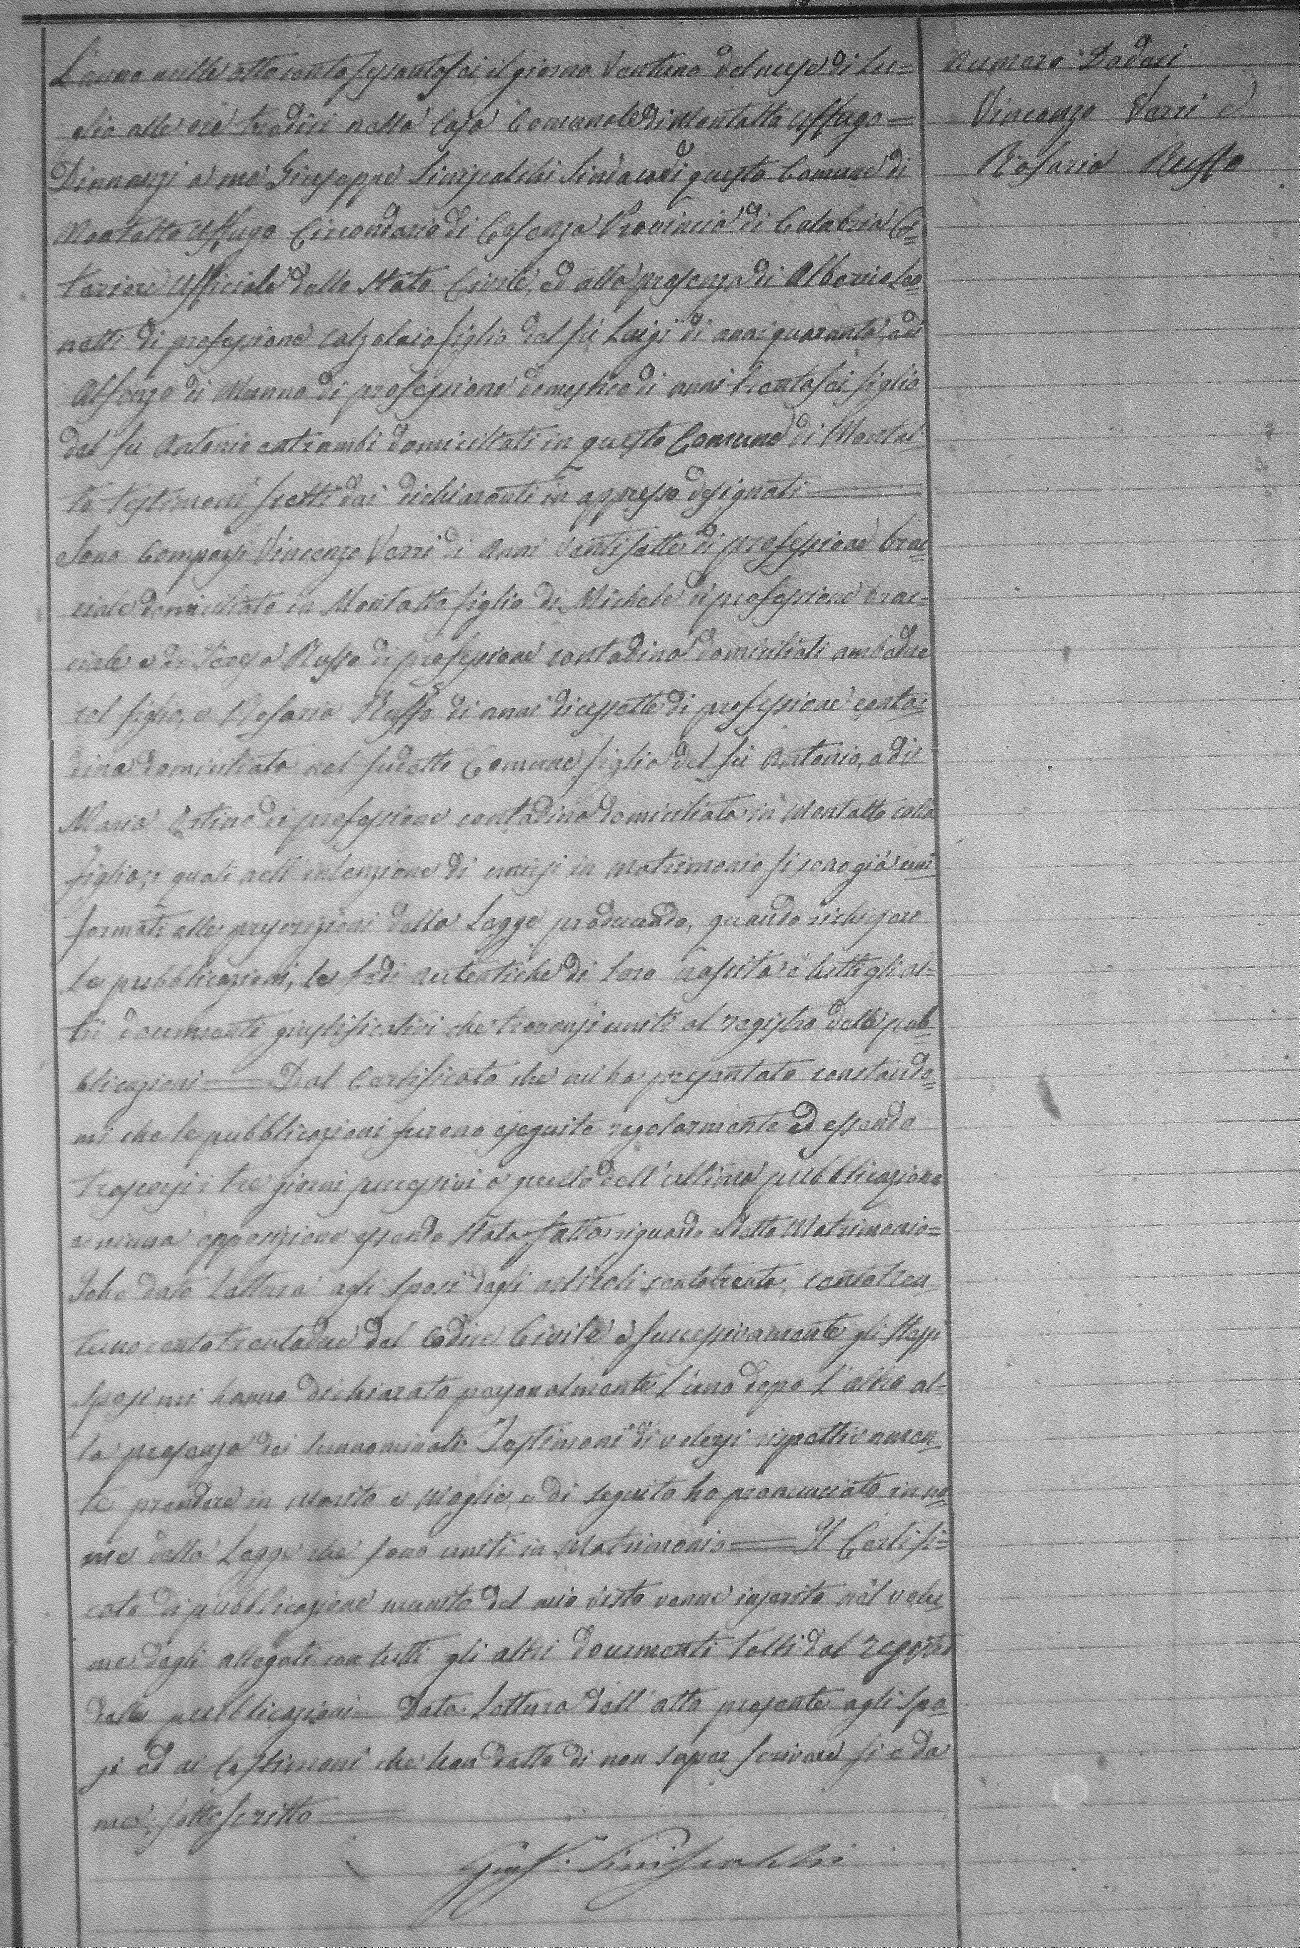 L'anno mille ottocento sessantasei il giorno ventuno del mese di Lu=
glio alle ore tredici nella Casa Comunale di Montalto Uffugo=
Dinnanzi a me Giuseppe Siniscalchi Sindaco di questo Comune di
Montalto Uffugo Circondario di Cosenza Provincia di Calabria Ci=
teriore Ufficiale dello Stato Civile, ed alla presenza di Alberico
netti di professione calzolaio figlio del fu Luigi di anni quaranta, ed
Alfonzo di Manna di professione domestico di anni trentasei figlio
del fu Antonio entrambi domiciliati in questo Comune di Montal
to testimoni scelti dai dichiaranti in appresso designati
Sono comparsi Vincenzo Varri di anni ventisette di professione brac=
ciale domiciliato in Montalto figlio di Michele di professione brac=
ciale e di Teresa Russo di professione contadina domiciliati ambedue
col figlio, e Rosaria Ruffo di anni dicessette di professione conta=
dina domiciliata nel sudetto Comune figlia del fu Antonio, e di
Maria di professione contadina domiciliata in Montalto colla
figlia, i quali nell'intenzione di unirsi in matrimonio si sono già uni
formati alle prescrizioni della Legge producendo, quando richiesero
le pubblicazioni, le fedi autentiche di loro nascita e tutti gli al=
tri documenti giustificativi che trovansi uniti al registro delle pub
blicazioni Dal Certificato che mi ha presentato constando=
mi che le pubblicazioni furono eseguite regolarmente ed essendo
trascorsi i tre giorni successivi a quello dell'ultima pubblicazione
e niuna opposizione essendo stata fatta riguardo a detto Matrimonio=
Io ho dato lettura agli sposi degli articoli centotrenta, centotren
tuno centotrentadue del Codice Civile e successivamente gli stessi
sposi mi hanno dichiarato personalmente l'uno dopo l'altro al=
la presenza dei sunnominati Testimoni di volersi rispettivamen
te prendere in marito e moglie, e di seguito ho pronunciato in no
me della Legge che sono uniti in Matrimonio Il Certifi=
cato di pubblicazione munito del mio visto venne inserito nel volu
me degli allegati con tutti gli altri documenti tolti dal registro
delle pubblicazioni Data lettura dell'atto presente agli spo
si ed ai testimoni che han detto di non saper scrivere si è da
me sottoscritto
Gius. Siniscalchi
Numero Dodeci
Vincenzo Varri e
Rosaria Ruffo